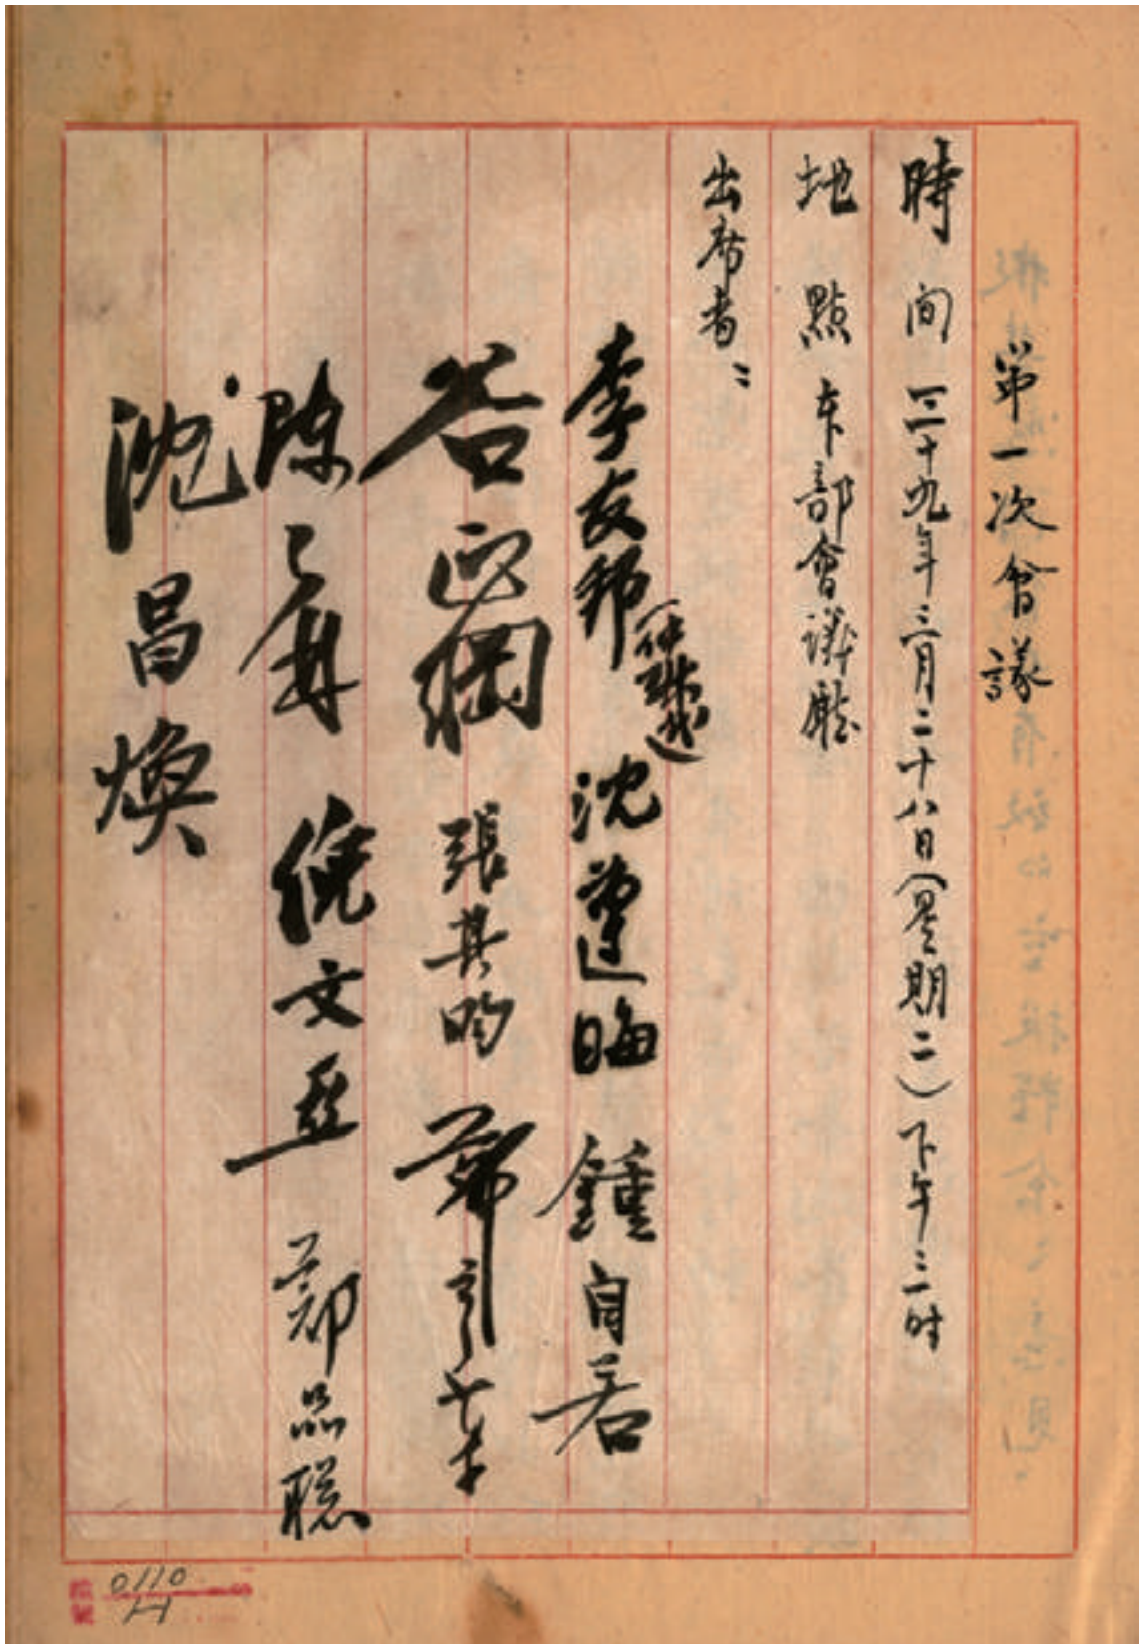 第一次會議
時間 三十九年三月二十八日(星期二)下午三時
地點 本部會議廳
出席者:
李友邦 沈遵晦 鍾自若
谷正綱 張其昀
陳 倪文亞 鄭品聰
沈昌煥
0110